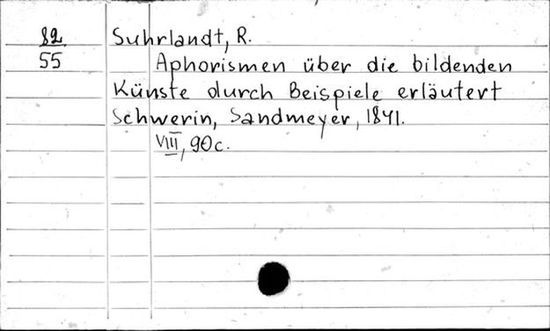 82 Suhrlandt, R.
55 Aphorismen über die bildenden
Künste durch Beispiele erläutert
Schwerin, Sandmeyer, 1841.
VIII, 90 c.